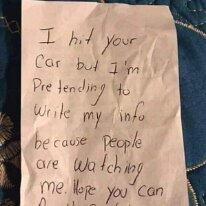 I hit your
Car but I'm
Pretending to
Write my info
because people
are watching
me. Hope you can